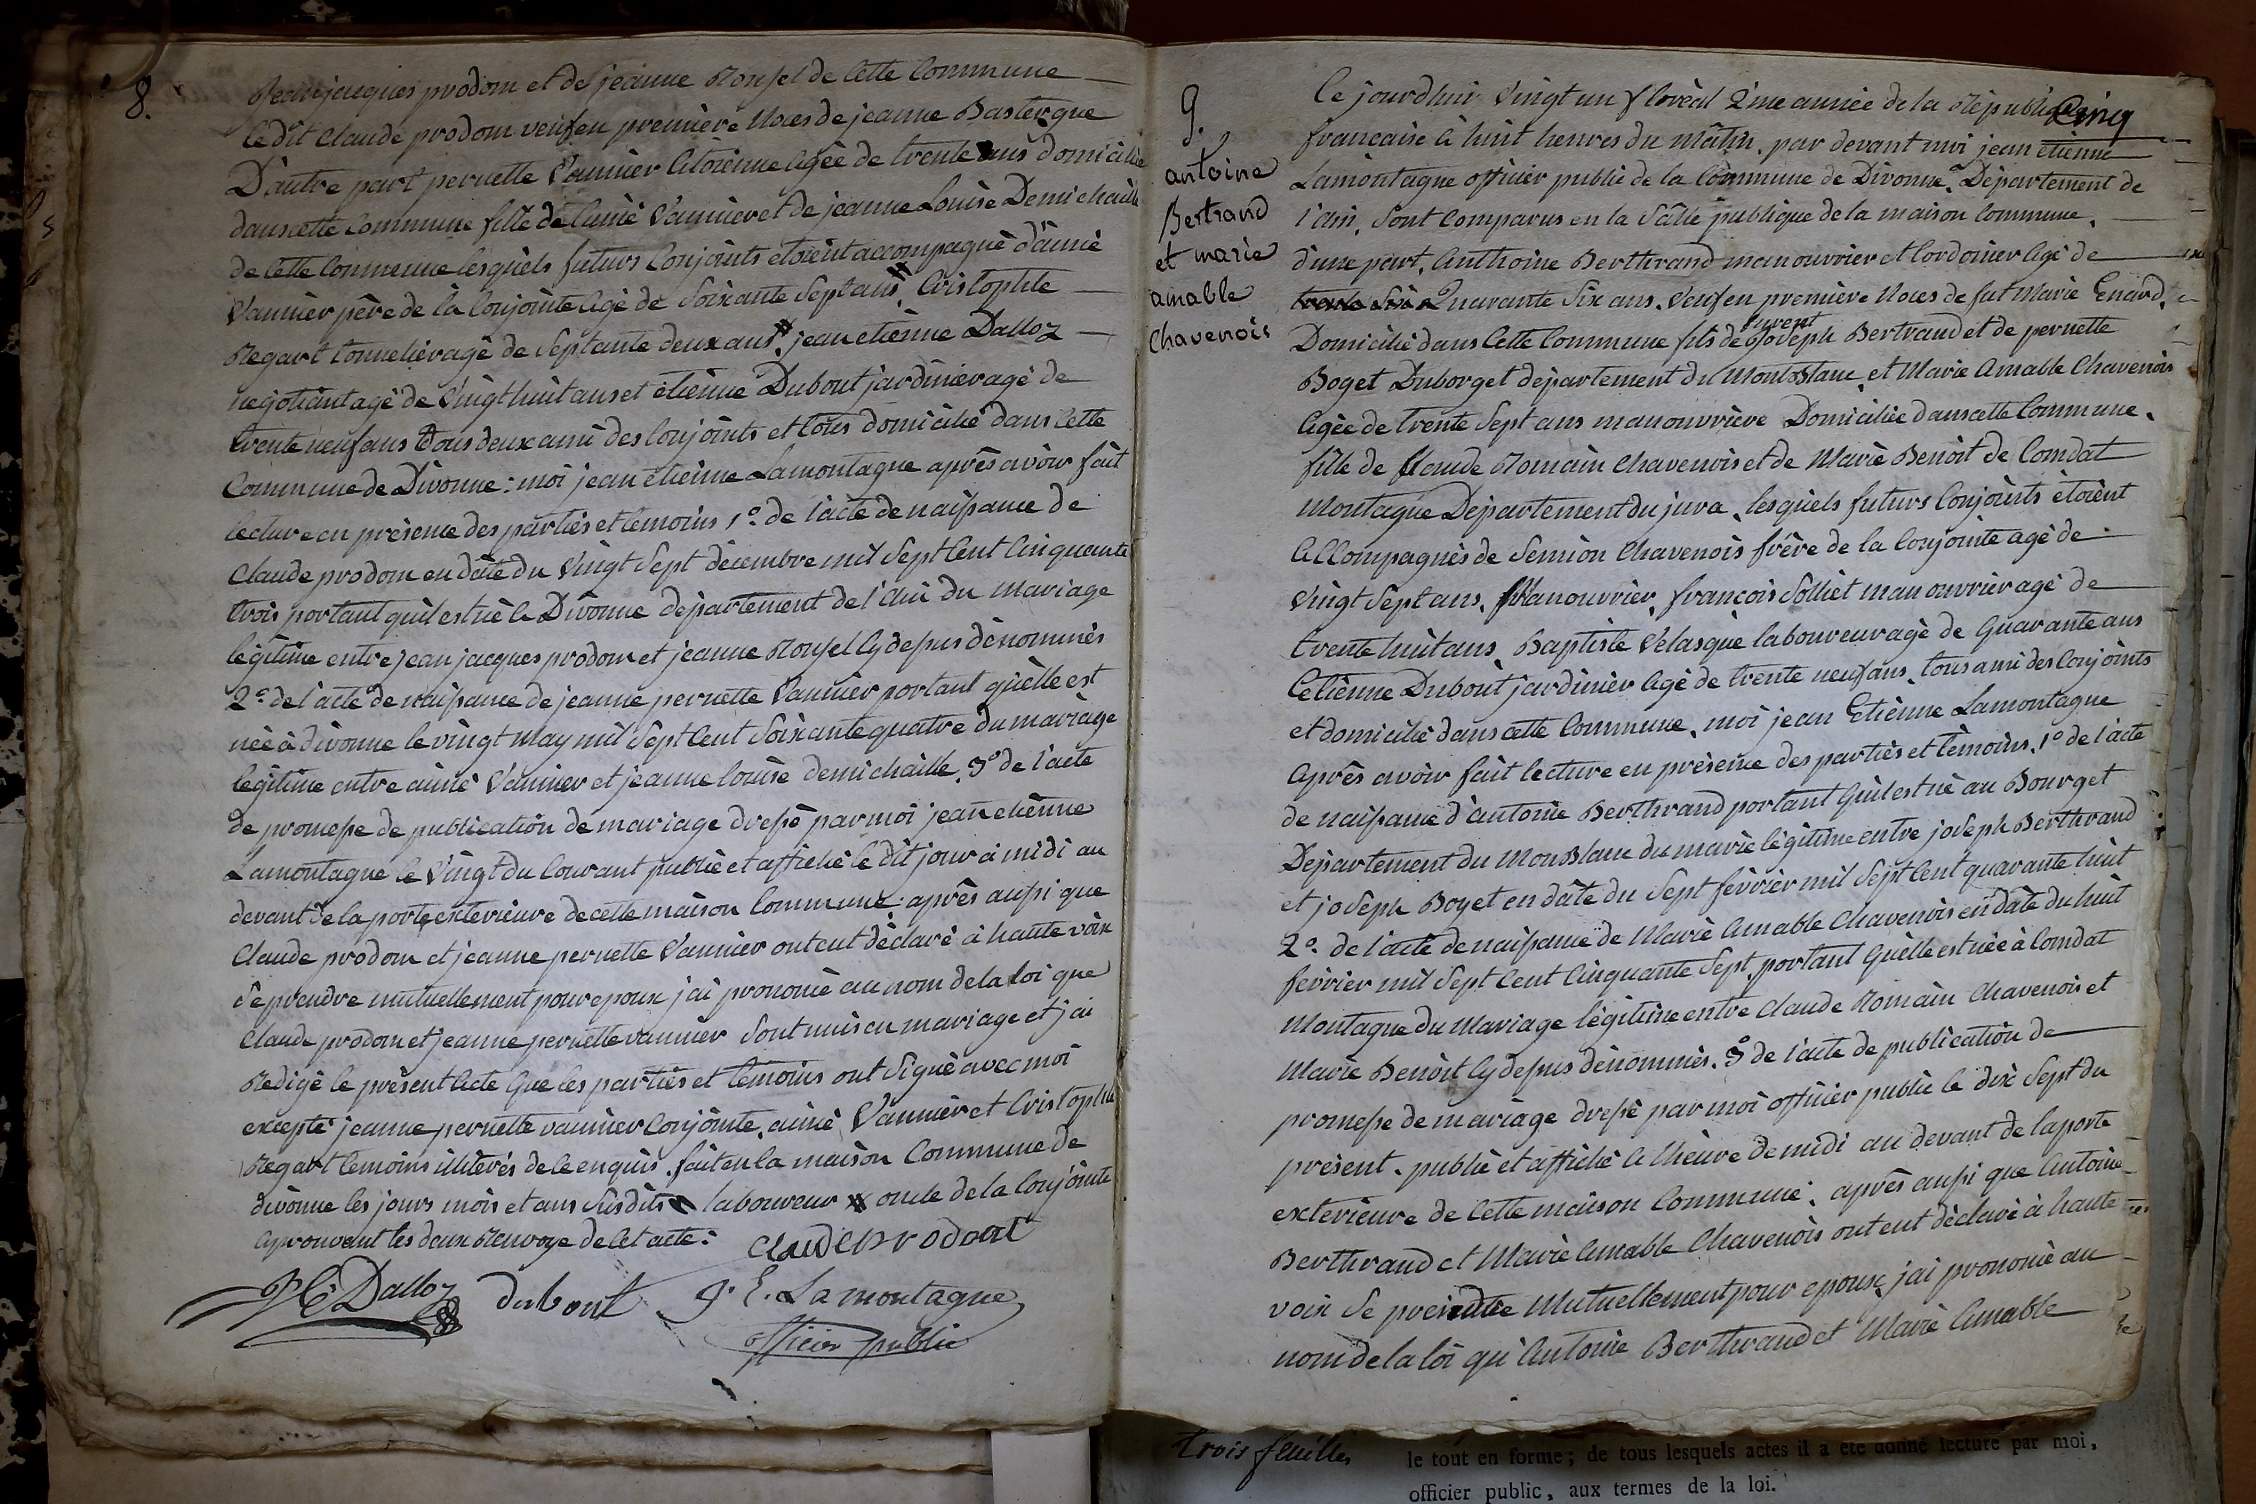 8.
Jean jacques prodom et de jeanne Roussel de Cette Commune
le dit Claude prodom veuf en première Noces de jeanne Basterque
D'autre part pernette Vannier Citoienne Agèe de trente ans domicilièe
dans cette Commune fille de aimè Vannier et de jeanne Louise Demichaille
de Cette Commune lesquels futurs Conjoints etoient accompagnè d'aimè
Vannier père de la Conjointe Agè de Soixante Sept ans, Cristophle
Regart tonnelier agè de Septante deux ans, jean etienne Dalloz
negotiant agè de Vingt huit ans et etienne Dubout jardinier agè de
trente neuf ans tous deux ami des Conjoints et tous domicilié dans Cette
Commune de Divonne : moi jean etienne Lamontagne après avoir fait
lecture en présence des parties et temoins 1o. de l'acte de naissance de
Claude prodom en date du Vingt Sept décembre mil Sept Cent Cinquante
trois portant quil est nè à Divonne département de l'Ain du Mariage
légitime entre jean jacques prodom et jeanne Roussel Cy dessus dènommés
2o de l'acte de naissance de jeanne pernette Vannier portant quèlle est
nèe à divonne le vingt May mil Sept Cent Soixante quatre du mariage
legitime entre aimè Vannier et jeanne louise demichaille. 3o de l'acte
de promesse de publication de mariage dressè par moi jean etienne
Lamontagne le Vingt du Courant publiè et affichè le dit jour à midi au
devant de la porte exterieure de cette maison Commune. après aussi que
Claude prodom et jeanne pernette Vannier ont eut dèclarè à haute voix
se prendre mutuellement pour epoux j'ai prononcè au nom de la loi que
Claude prodom et jeanne pernette vannier Sont unis en mariage et j'ai
Redigè le prèsent Acte que les parties et temoins ont Signè avec moi
exceptè jeanne pernette vannier Conjointe, aimè Vannier et Cristophle
Regart temoins illiterés de ce enquis. fait en la maison Commune de
divonne les jours mois et ans Susdits laboureur # oncle de la Conjointe
aprouvant les deux Renvoye de Cet acte :
claude prodom
J E Dalloz dubout J. E. Lamontagne
officier public
9.
antoine
Bertrand
et marie
amable
Chavenois
Cinq
Ce jourdhui Vingt un floréal 2ème année de la République
francaise à huit heures du matin, par devant moi jean etienne
Lamontagne officier public de la Commune de Divonne. Département de
l'ain, Sont Comparus en la Salle publique de la maison Commune,
d'une part, Anthoine Berthrand manouvrier et Cordonier Agè de
Quarante Six ans, Veuf en première Noces de fut Marie Enard,
Domicilié dans Cette Commune fils de joseph Bertrand et de pernette
Boget Duborget département du Montblanc, et Marie Amable Chavenois
Agèe de trente Sept ans manouvrière Domiciliée dans cette Commune,
fille de Claude Romain Chavenois et de Marie Benoit de Condat
Montagne Département du jura, lesquels futurs Conjoints étoient
Accompagnés de Semion Chavenois frère de la Conjointe agè de
Vingt Sept ans, Manouvrier, francois Solliet manouvrier agè de
trente huit ans, Baptiste Velasque laboureur agè de Quarante ans
Cetienne Dubout jardinier Agè de trente neuf ans, tous ami des Conjoints
et domicilié dans cette Commune, moi jean Etienne Lamontagne
Après avoir fait lecture en prèsence des parties et tèmoins, 1o de l'acte
de naissance d'antoine Berthrand portant Quil est nè au Bourget
Departement du Monblanc du marie légitime entre joseph Berthrand
et joseph Boget en date du Sept février mil Sept Cent quarante huit
2o. de l'acte de naissance de Marie Amable Chavenois en date du huit
fevrier mil Sept Cent Cinquante Sept, portant Quèlle est nèe à Condat
Montagne du Mariage légitime entre Claude Romain Chavenois et
Marie Benoit Cy dessus dènommés. 3o de l'acte de publication de
promesse de mariage dressé par moi officier public le dix Sept du
présent, publiè et affichè à l'heure de midi au devant de la porte
exterieure de Cette maison Commune; après aussi que Antoine
Berthrand et Marie Amable Chavenois ont eut déclaré à haute
voix Se preindre Mutuellement pour epoux, j'ai prononcè au
nom de la loi qu'Antoine Berthrand et Marie Amable
trois feuilles
le tout en forme ; de tous lesquels actes il a été donné lecture par moi,
officier public, aux termes de la loi.